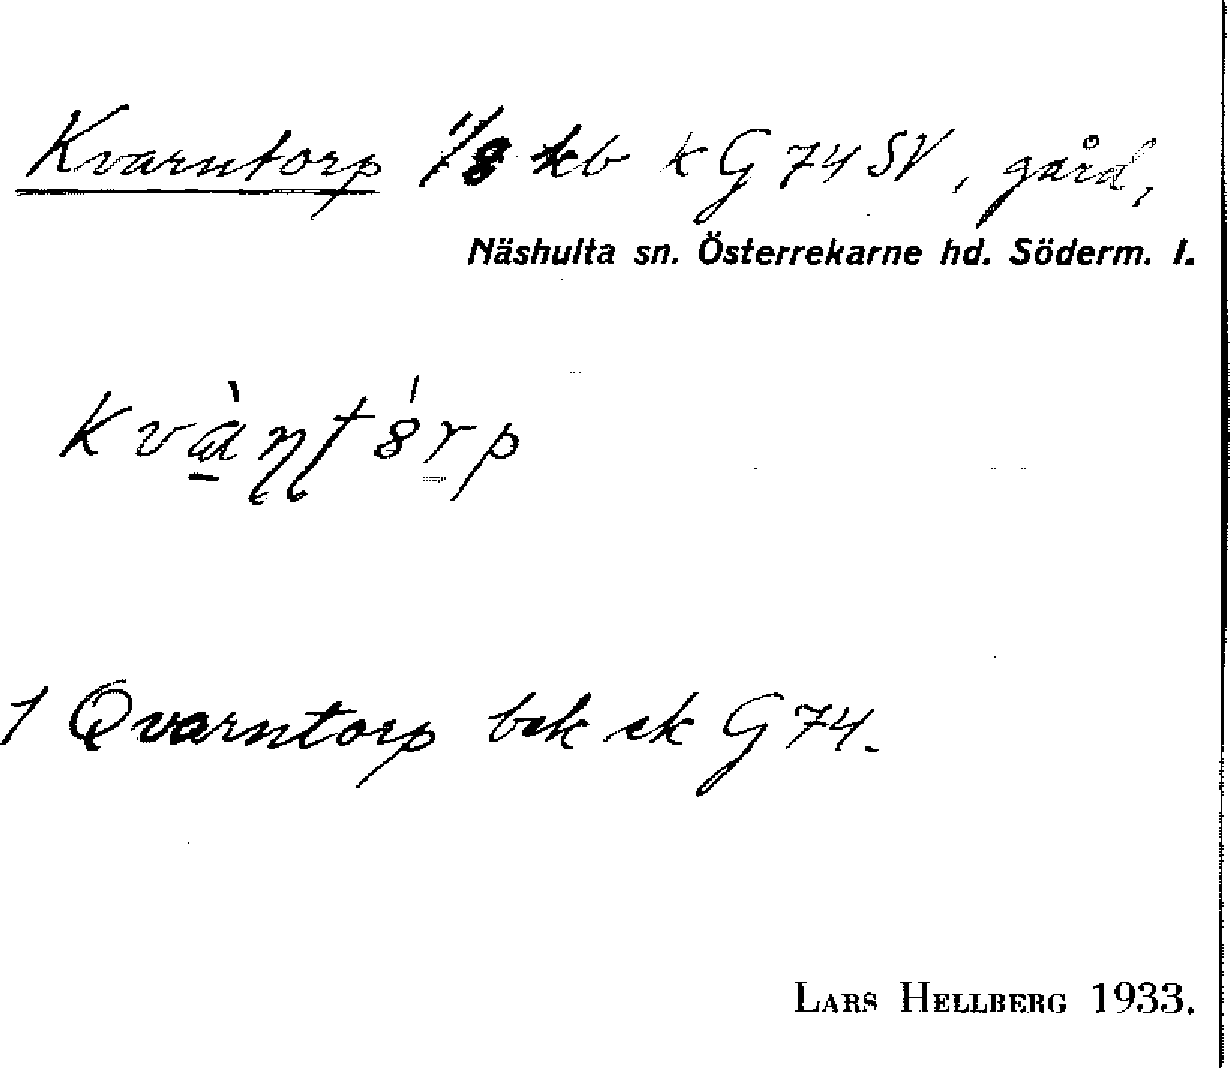 Kvarntorp 1/8 kb k G 74 SV, gård,
Näshulta sn. Österrekarne hd. Söderm. l.
kvàɳʈ8́rp
1 Qvarntorp bek ek G 74.
LARS HELLBERG 1933.